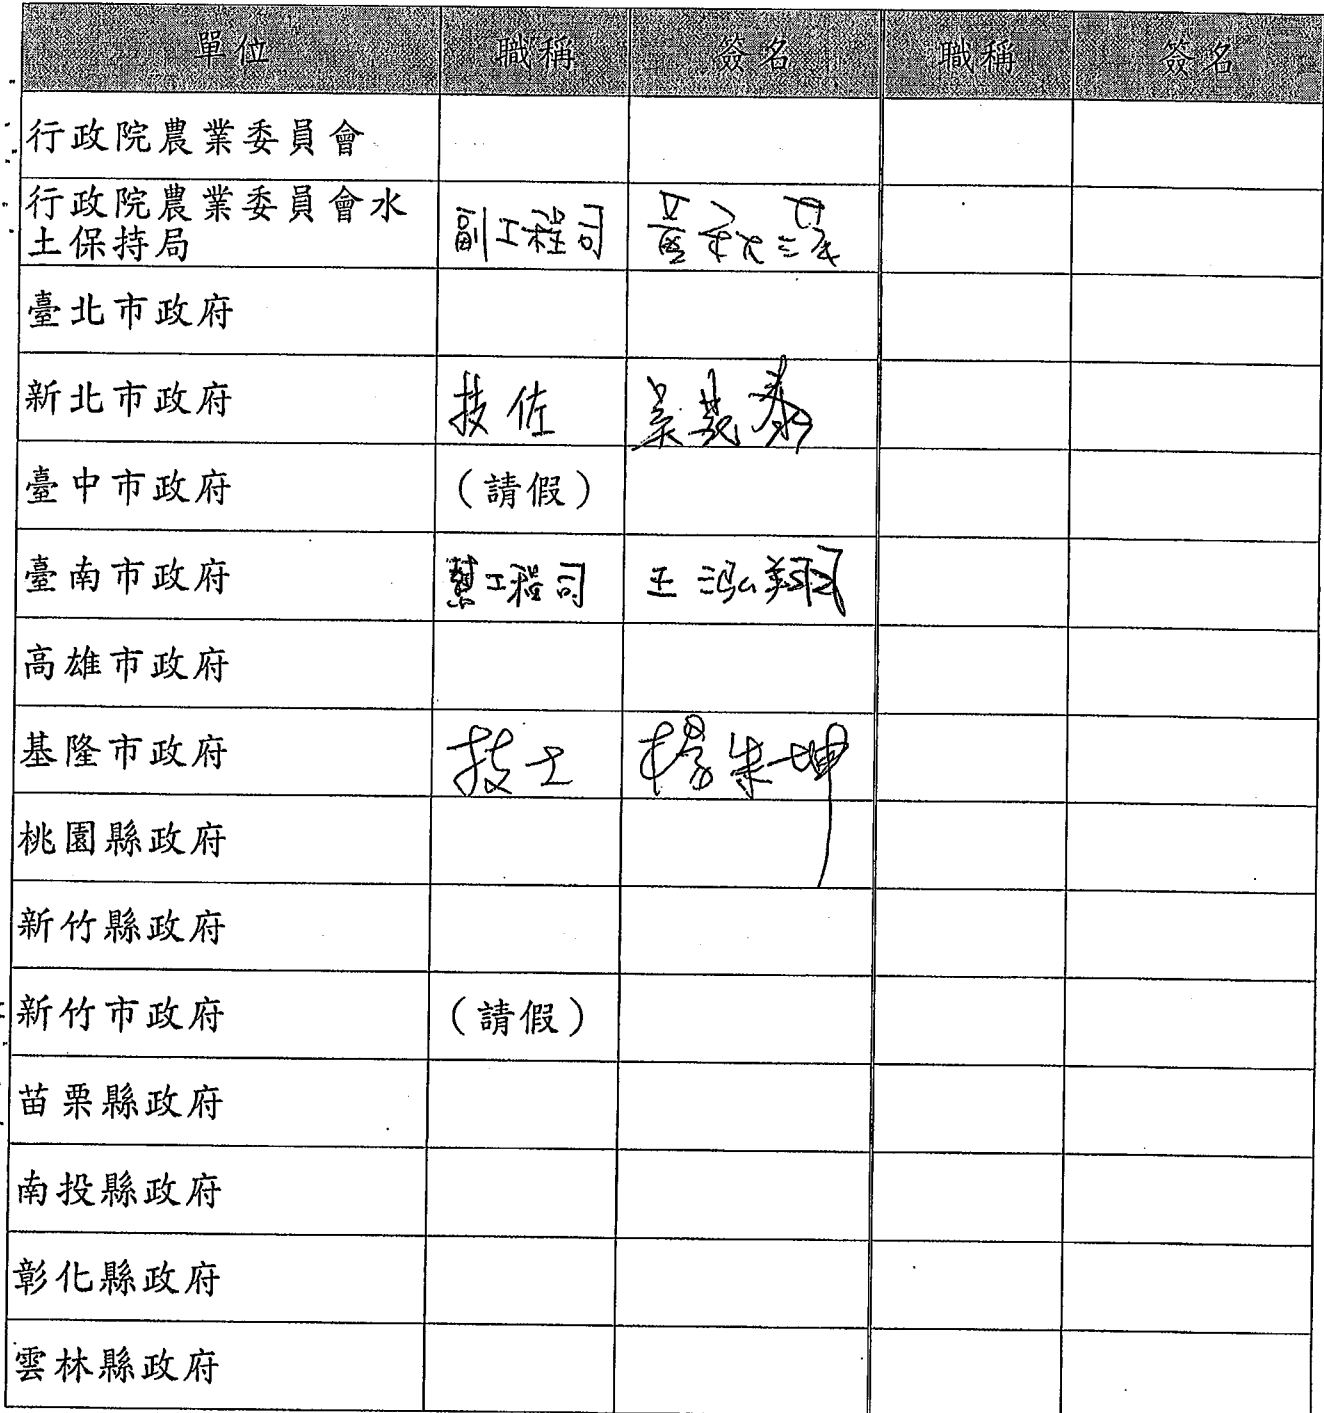 單位 職稱 簽名 職稱 簽名
行政院農業委員會
行政院農業委員會水
土保持局 副工程司
臺北市政府
新北市政府 技佐 吳義泰
臺中市政府 （請假）
臺南市政府 幫工程司 王泓翔
高雄市政府
基隆市政府 技士 楊朱坤
桃園縣政府
新竹縣政府
新竹市政府 （請假）
苗栗縣政府
南投縣政府
彰化縣政府
雲林縣政府